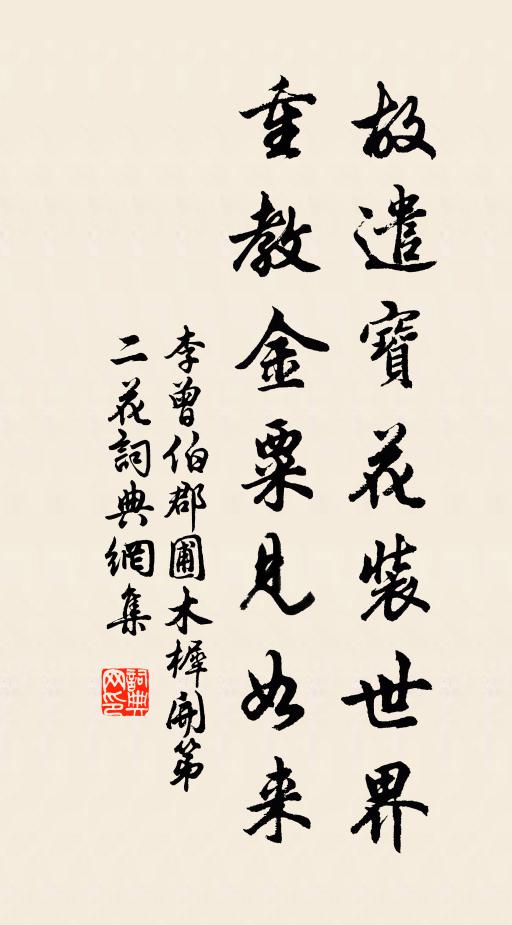 故遣寶花裝世界
重教金粟見如来
李曾伯郡圃木樨開第
二花詞典網集
詞典网印